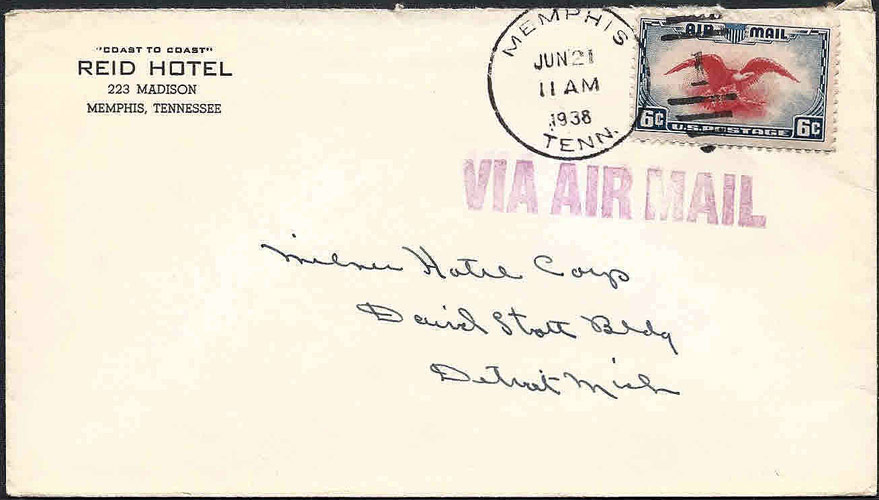 "COAST TO COAST"
REID HOTEL
223 MADISON
MEMPHIS, TENNESSEE
MEMPHIS
JUN 21
11 AM
1938
TENN.
AIR MAIL
6¢ U.S. POSTAGE 6¢
VIA AIR MAIL
Milner Hotel Corp
David Stott Bldg
Detroit Mich